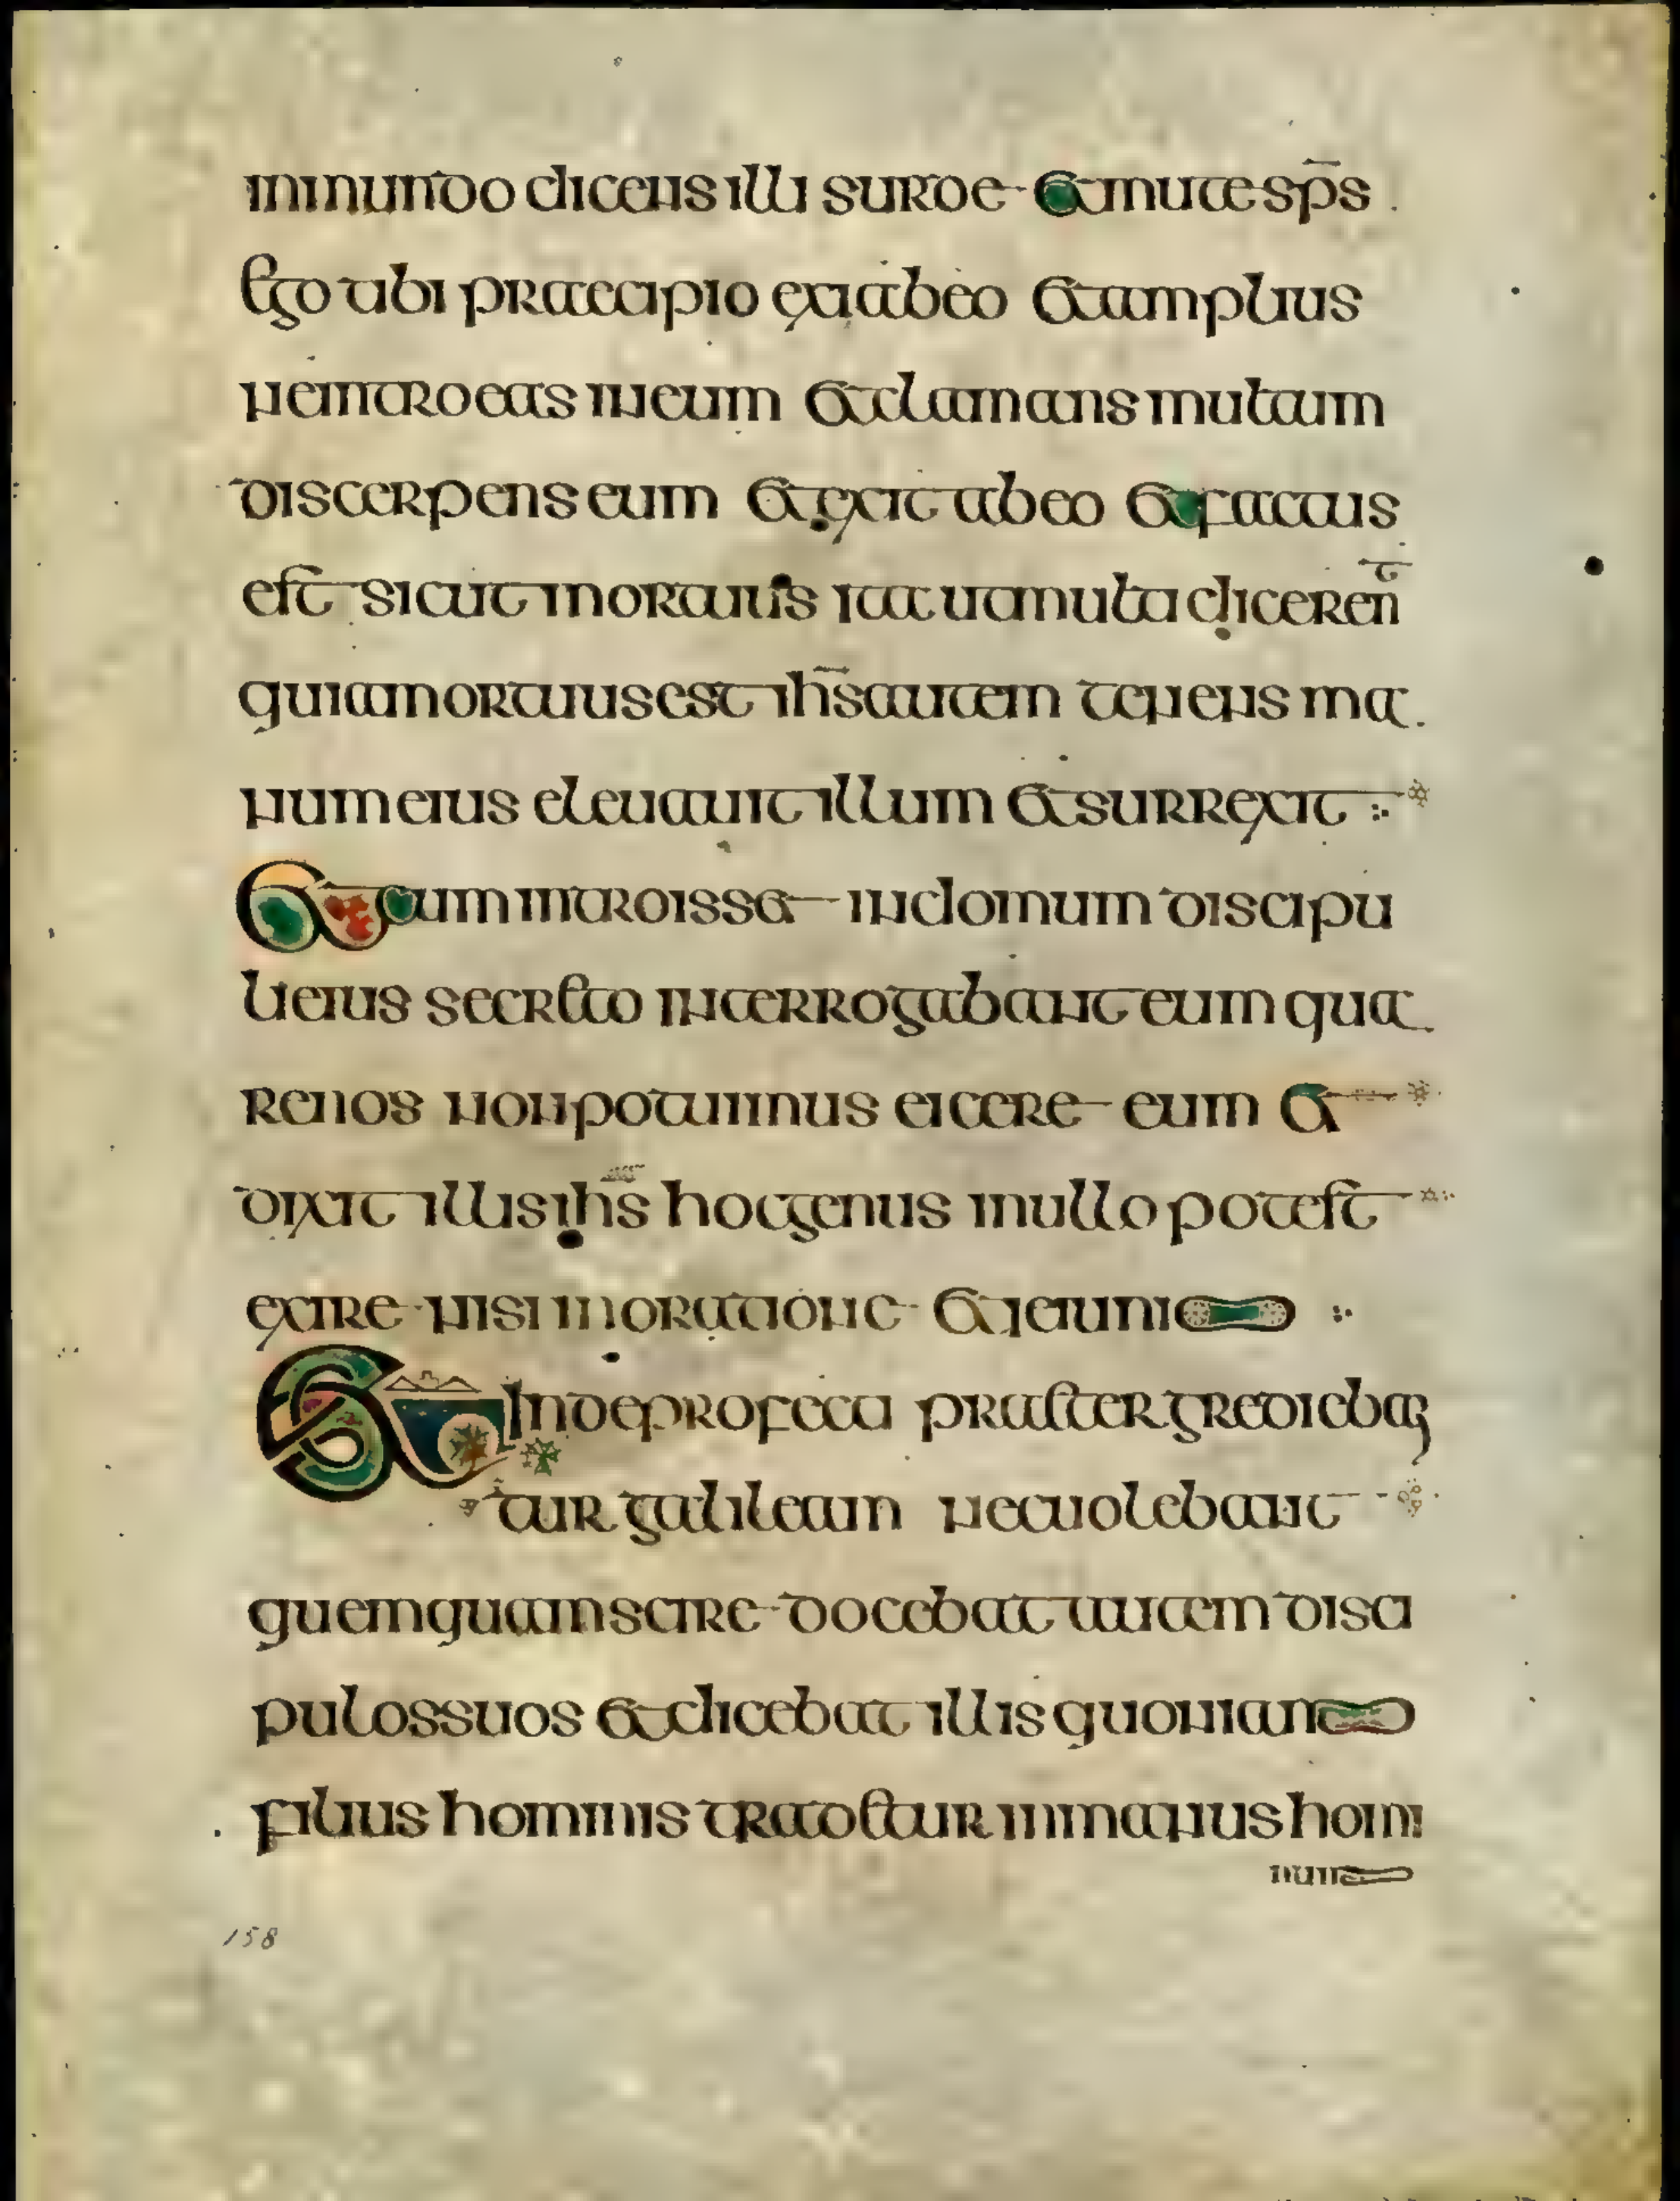 inmundo dicens illi surde et mute sp̄s
ego tibi praecipio exi ab eo et amplius
ne introeas in eum et clamans multum
discerpens eum et exiit ab eo et factus
est sicut mortuus ita ut multi dicerent̄
quia mortuus est ih̄s autem tenens ma
num eius eleuauit illum et surrexit
Et cum introisset in domum discipu
li eius secreto interrogabant eum qua
re nos non potuimus eicere eum et
dixit illis ih̄s hoc genus in nullo potest
exire nisi in oratione et ieiunio
Et inde profecti praetergredieban
tur galileam nec uolebant
quemquam scire docebat autem disci
pulos suos et dicebat illis quoniam
filius hominis tradetur in manus homi
num
158